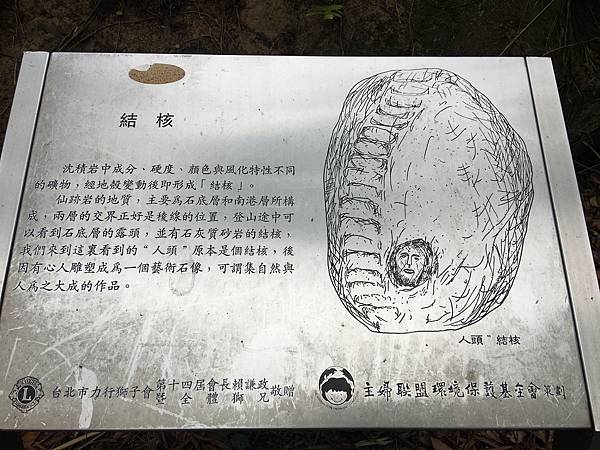 結核
沈積岩中成分、硬度、顏色與風化特性不同
的礦物，經地殼變動後即形成「結核」。
仙跡岩的地質，主要爲石底層和南港層所構
成，兩層的交界正好是稜線的位置，登山途中可
以看到石底層的露頭，並有石灰質砂岩的結核，
我們來到這裏看到的“人頭”原本是個結核，後
因有心人雕塑成爲一個藝術石像，可謂集自然與
人爲之大成的作品。
人頭”結核
L
台北市力行獅子會第十四屆會長賴謙政敬贈
暨全體獅兄
主婦聯盟環境保護基金會策劃